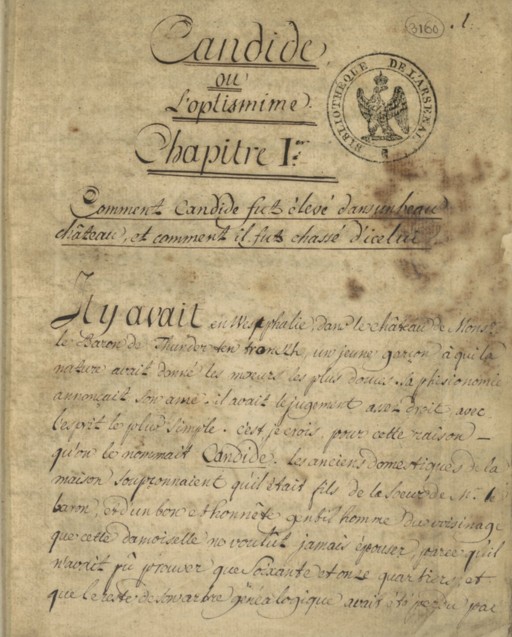 3160 1.
Candide,
ou
L'optismime.
Chapitre I.er
BIBLIOTHÈQUE DE L'ARSENAL
Comment Candide fut élevé dans un beau
château, et comment il fut chassé d'icelui
Il y avait en Westphalie, dans le château de Mons.r
le Baron de Thunder-ten-tronckh, un jeune garçon à qui la
nature avait donné les mœurs les plus douces. Sa phisionomie
annonçait son ame. il avait le jugement assez droit, avec
l'esprit le plus simple. c'est, je crois, pour cette raison -
qu'on le nommait Candide. les anciens domestiques de la
maison soupçonnaient qu'il était fils de la Soeur de M. le
baron, et d'un bon et honnête gentilhomme du voisinage
que cette damoiselle ne voulut jamais épouser, parce qu'il
n'avait pû prouver que soixante et onze quartiers, et
que le reste de son arbre généalogique avait été perdu par